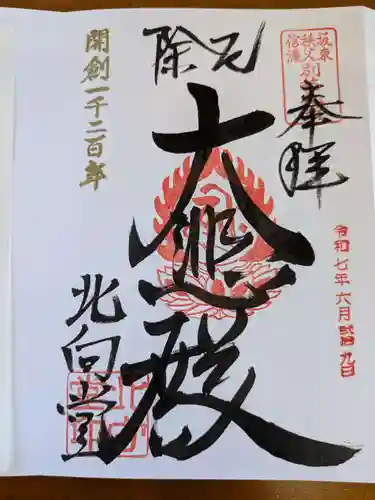 坂東
秩父別所
信濃
奉拝
令和七年六月弍拾九日
除厄
大悲殿
北向堂
開創一千二百年